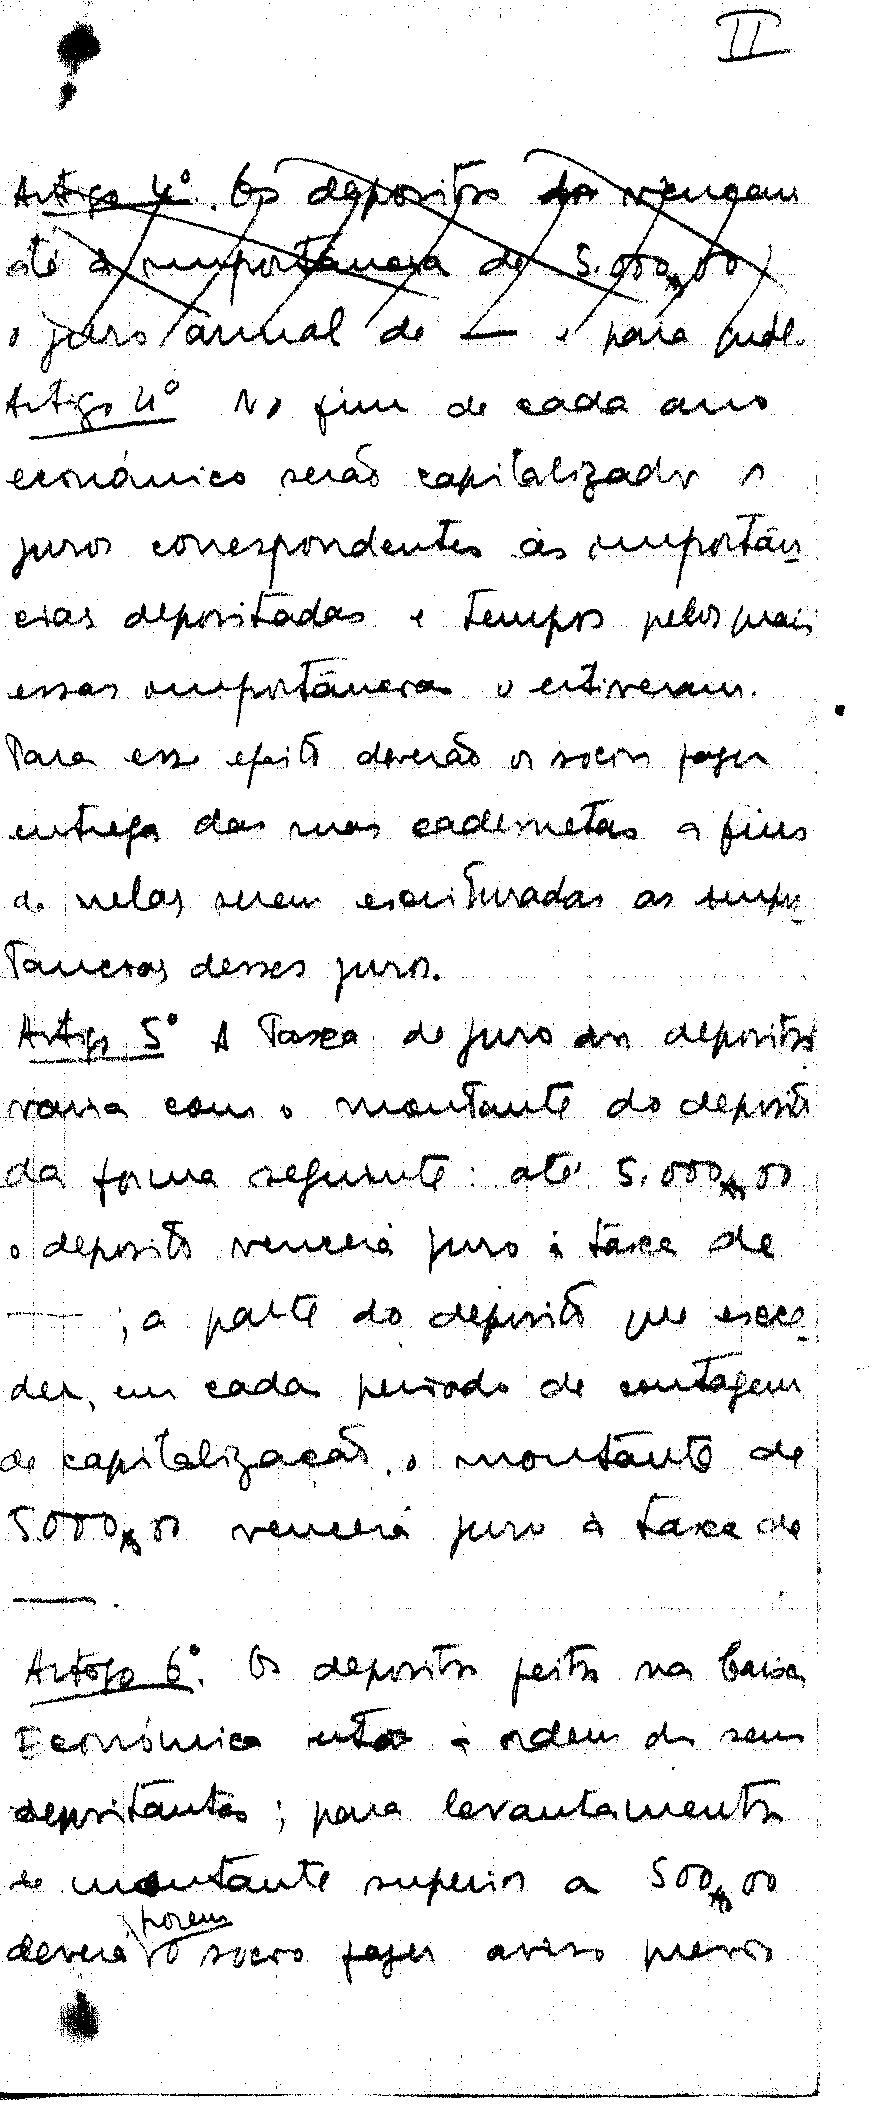 II
Artigo 4º. Os depositos vençam
até à importancia de 5.000$00
o juro annual de — e para
Artigo 4º No fim de cada ano
económico serão capitalizados os
juros correspondentes às importân-
cias depositadas e tempos pelos quais
essas importâncias o estiveram.
Para esse efeito deverão os socios fazer
entrega das suas cadernetas a fim
de nelas serem escrituradas as impor-
tancias desses juros.
Artigo 5º A Taxa de juro dos depositos
varia com o montante do deposito
da forma seguinte: até 5.000$00
o deposito vencerá juro à taxa de
— ; a parte do deposito que exce-
der, em cada periodo de contagem
de capitalização, o montante de
5000$00 vencerá juro à taxa de
— .
Artigo 6º. Os depositos feitos na Caixa
Económica estão à ordem dos seus
depositantes; para levantamentos
de montante superior a 500$00
porem
deverá o socio fazer aviso previo